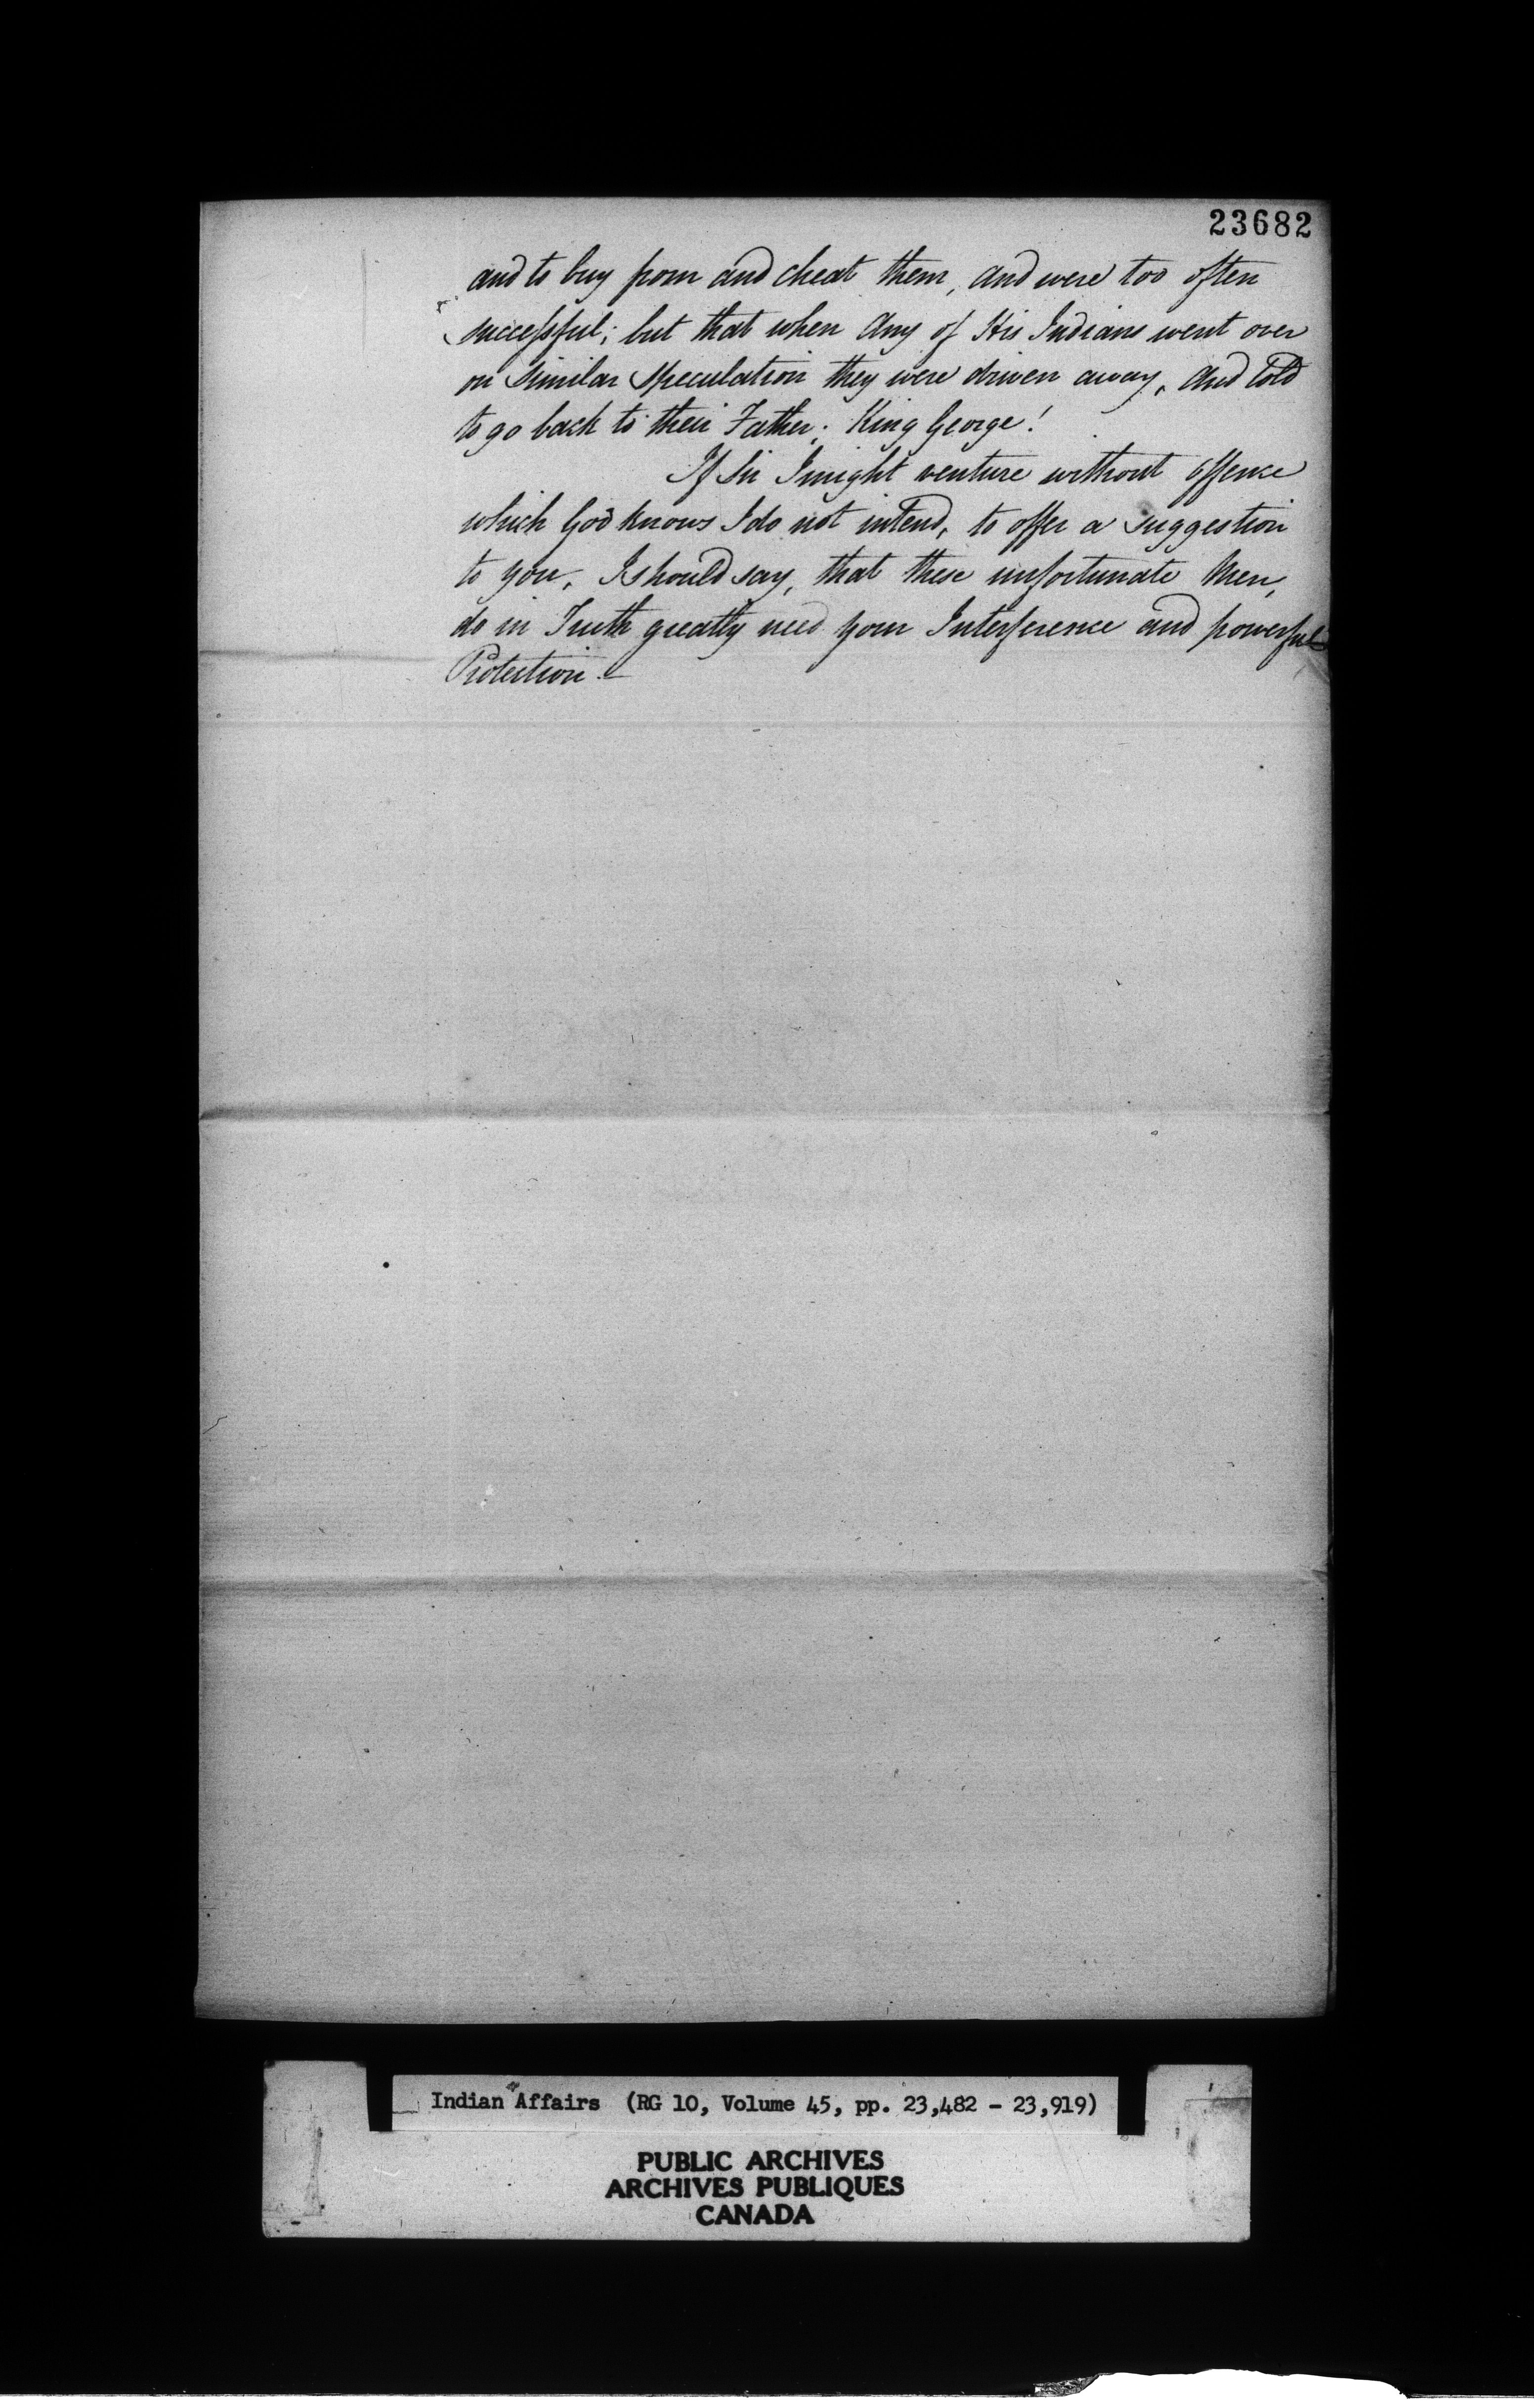 23682
and to buy from and cheat them, and were too often
successful; but that when Any of His Indians went over
on Similar Speculation they were driven away, And Told
to go back to their Father. King George!
If Sir I might venture without offence
which God knows I do not intend, to offer a suggestion
to you, I should say, that these unfortunate Men,
do in Truth greatly need your Interference and powerful
Protection.
Indian Affairs (RG 10, Volume 45, pp. 23,482 - 23,919)
PUBLIC ARCHIVES
ARCHIVES PUBLIQUES
CANADA